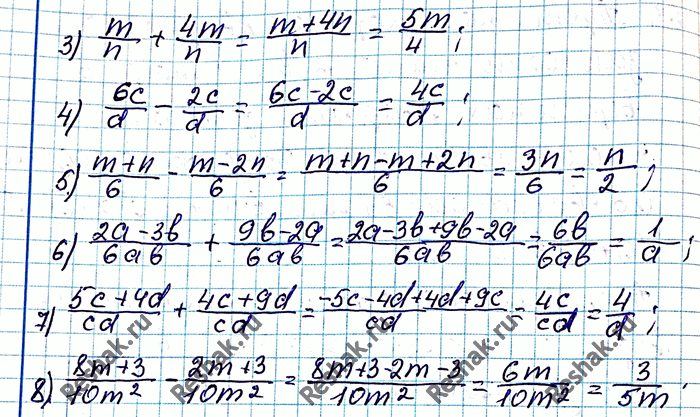 3) m/n + 4m/n = m+4n/n = 5m/4;
4) 6c/d - 2c/d = 6c-2c/d = 4c/d;
5) m+n/6 - m-2n/6 = m+n-m+2n/6 = 3n/6 = n/2;
6) 2a-3b/6ab + 9b-2a/6ab = 2a-3b+9b-2a/6ab = 6b/6ab = 1/a;
7) 5c+4d/cd + 4c+9d/cd = -5c-4d+4d+9c/cd = 4c/cd = 4/d;
8) 8m+3/10m² - 2m+3/10m² = 8m+3-2m-3/10m² = 6m/10m² = 3/5m.
Reshak.ru
Reshak.ru
Reshak.ru
Reshak.ru